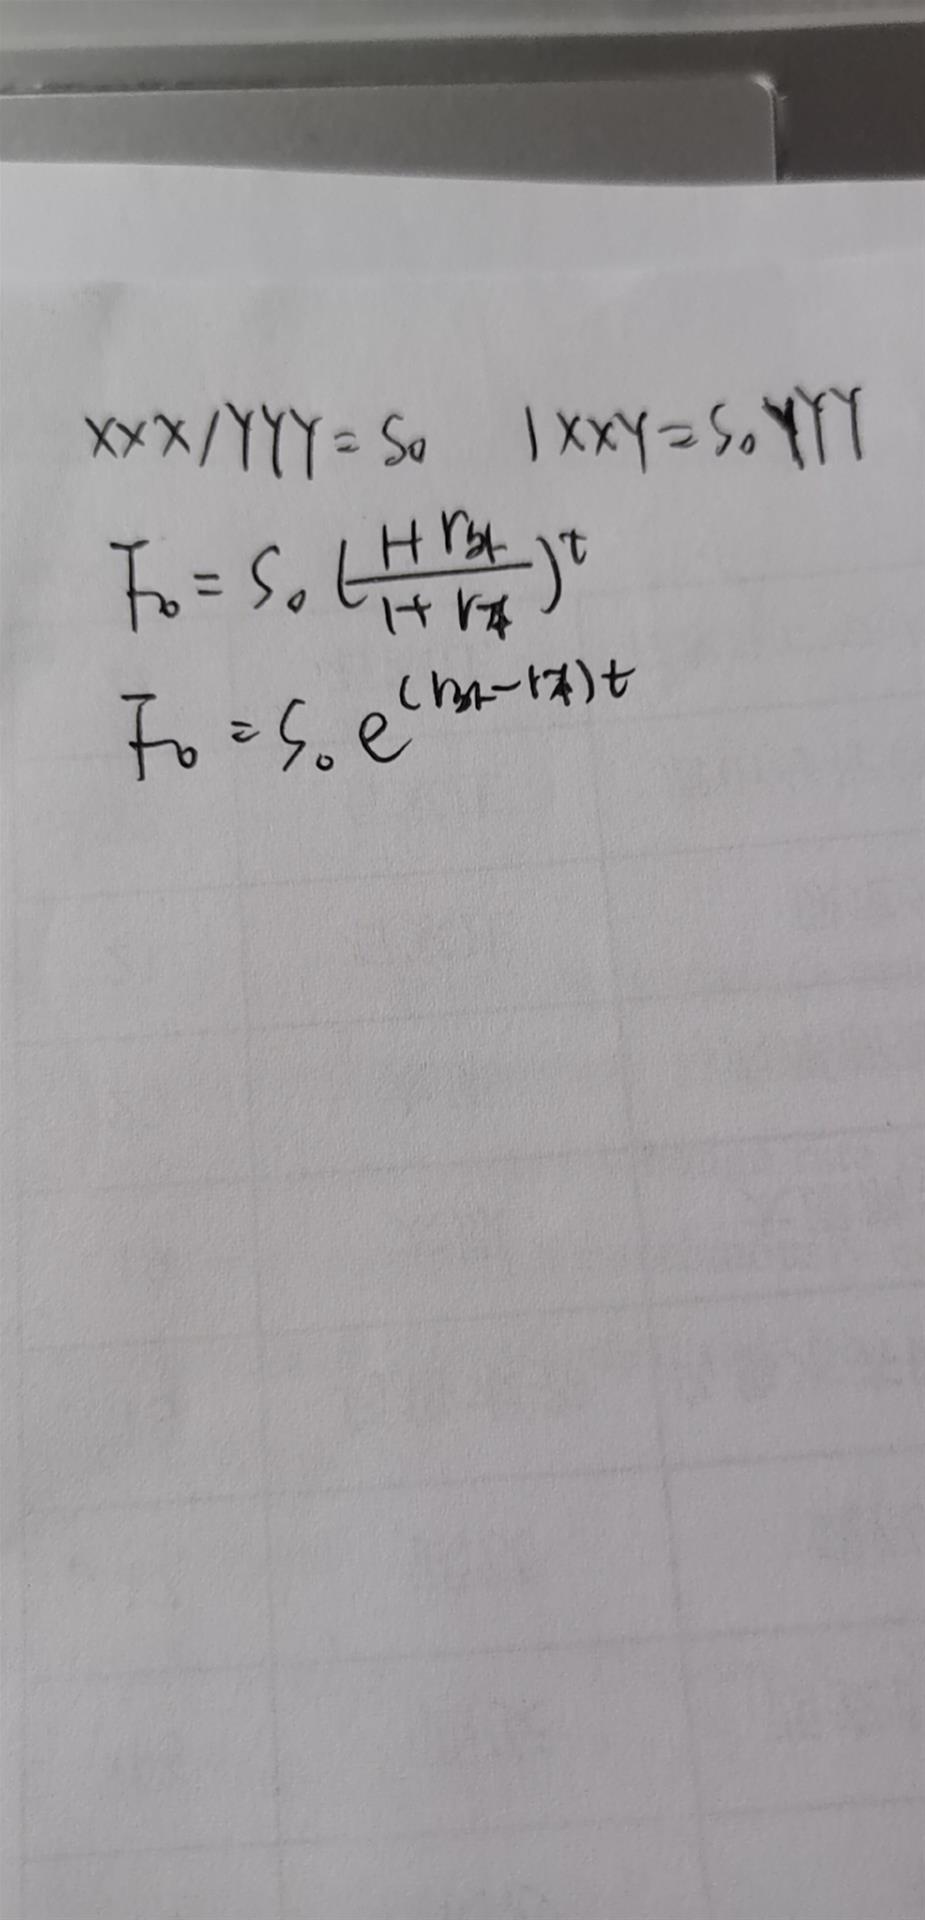 XXX/YYY=S₀ 1XXY=S₀YYY
F₀=S₀(1+r外/1+r本)^t
F₀=S₀e^(r外-r本)t